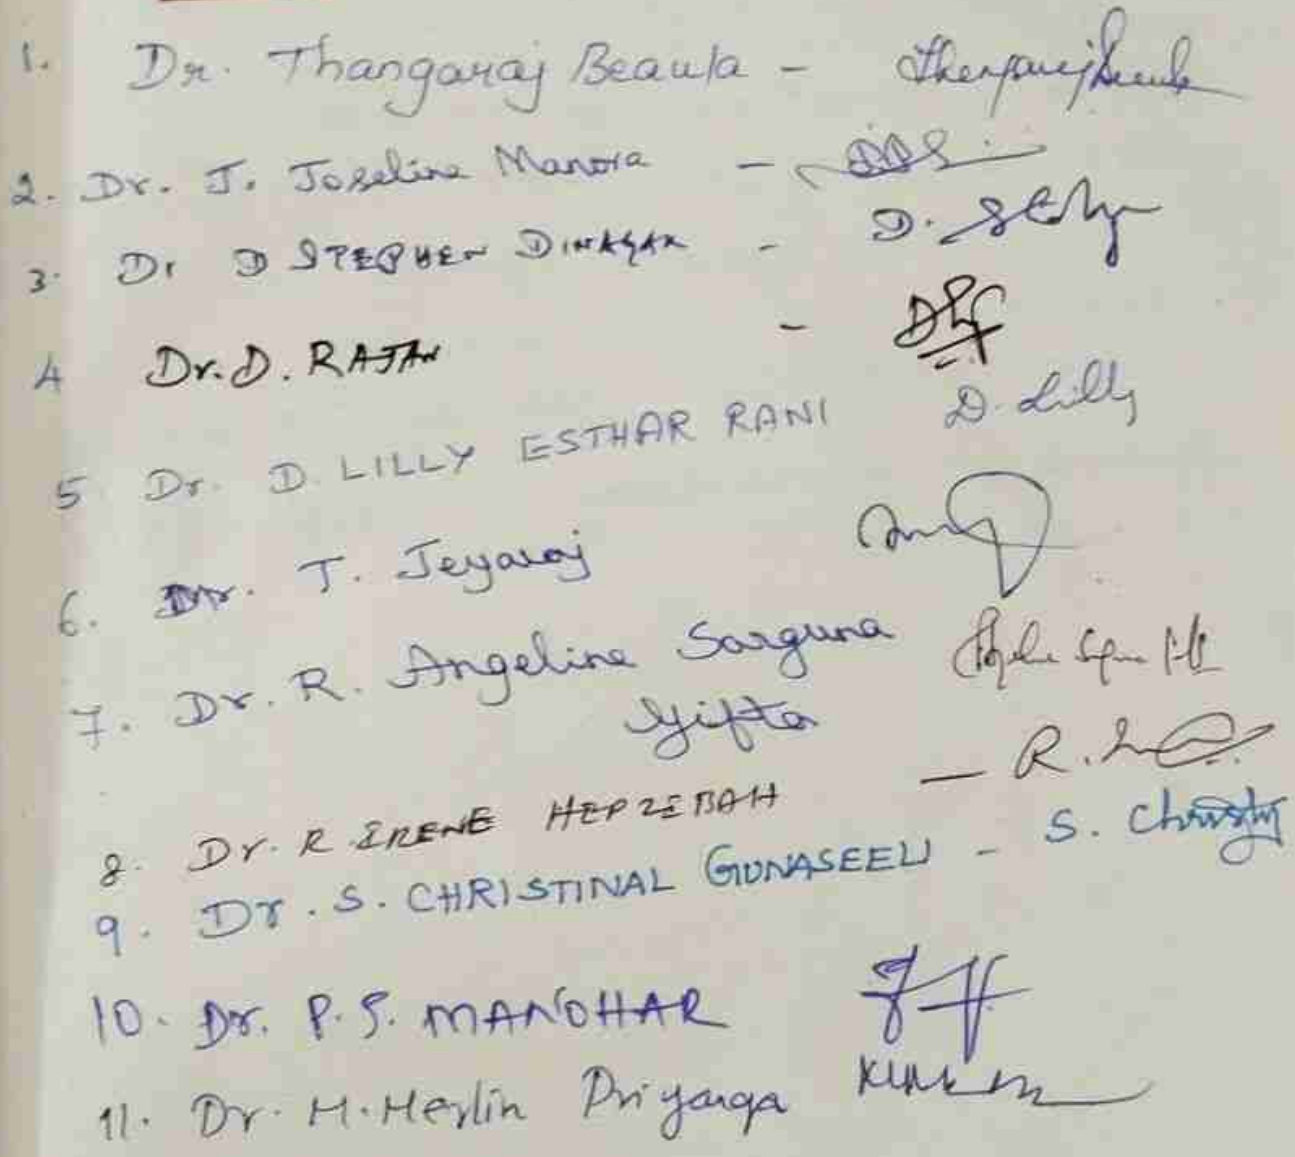 1. Dr. Thangaraj Beaula -
2. Dr. J. Joseline Manora -
3. Dr D STEPHEN DINAGAR - D.
4 Dr. D. RAJAN -
5 Dr. D. LILLY ESTHAR RANI D. Lilly
6. Dr. T. Jeyaraj
7. Dr. R. Angeline Sarguna
Gifta
8. Dr. R. IRENE HEPZEBAH - R.
9. Dr. S. CHRISTINAL GUNASEELI - S. Christy
10. Dr. P. S. MANOHAR
11. Dr. M. Merlin Priyanga